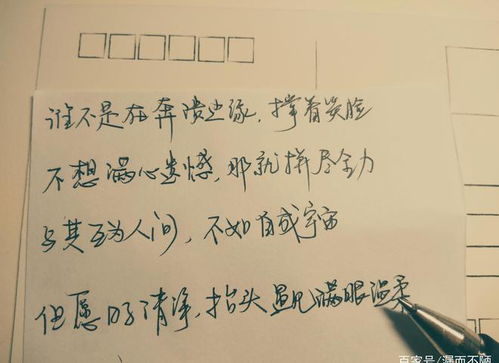 谁不是在奔溃边缘，撑着笑脸
不想满心遗憾，那就拼尽全力
与其互为人间，不如自成宇宙
但愿日子清净，抬头遇见满眼温柔
百家号/漏而不陋